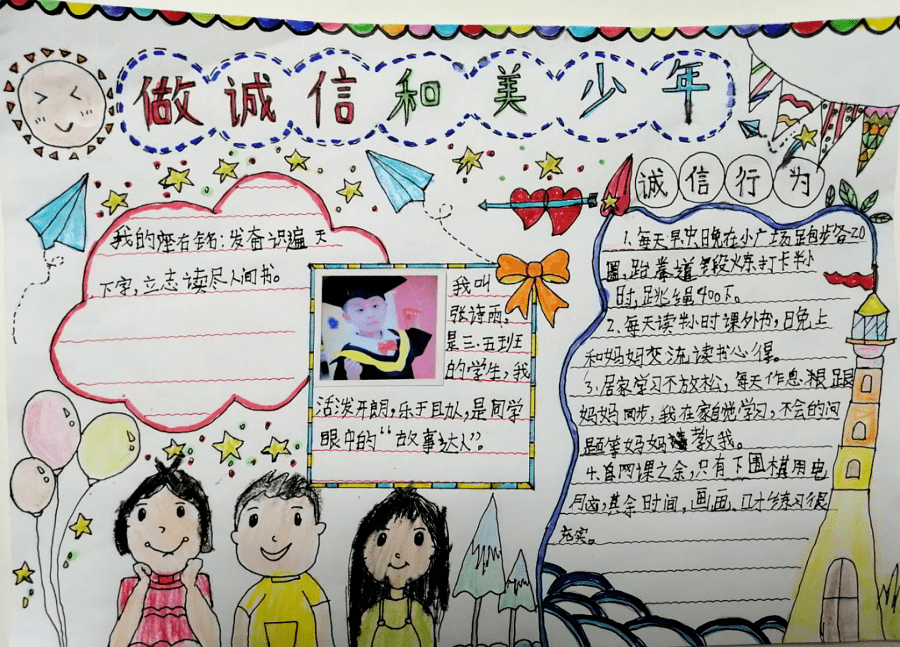 做诚信和美少年
我的座右铭:发奋识遍天
下字,立志读尽人间书。
我叫
张诗雨,
是三.五班
的学生,我
活泼开朗,乐于助人,是同学
眼中的“故事达人”。
诚信行为
1.每天早中晚在小广场跑步各20
圈,跆拳道 锻炼打卡半小
时,跳绳400下。
2.每天读半小时课外书,晚上
和妈妈交流读书心得。
3.居家学习不放松,每天作息跟
妈妈同步,我在家自己学习,不会的问
题等妈妈 教我。
4.自网课之余,只有下围棋用电
脑,其余时间,画画、口才练习很
充实。